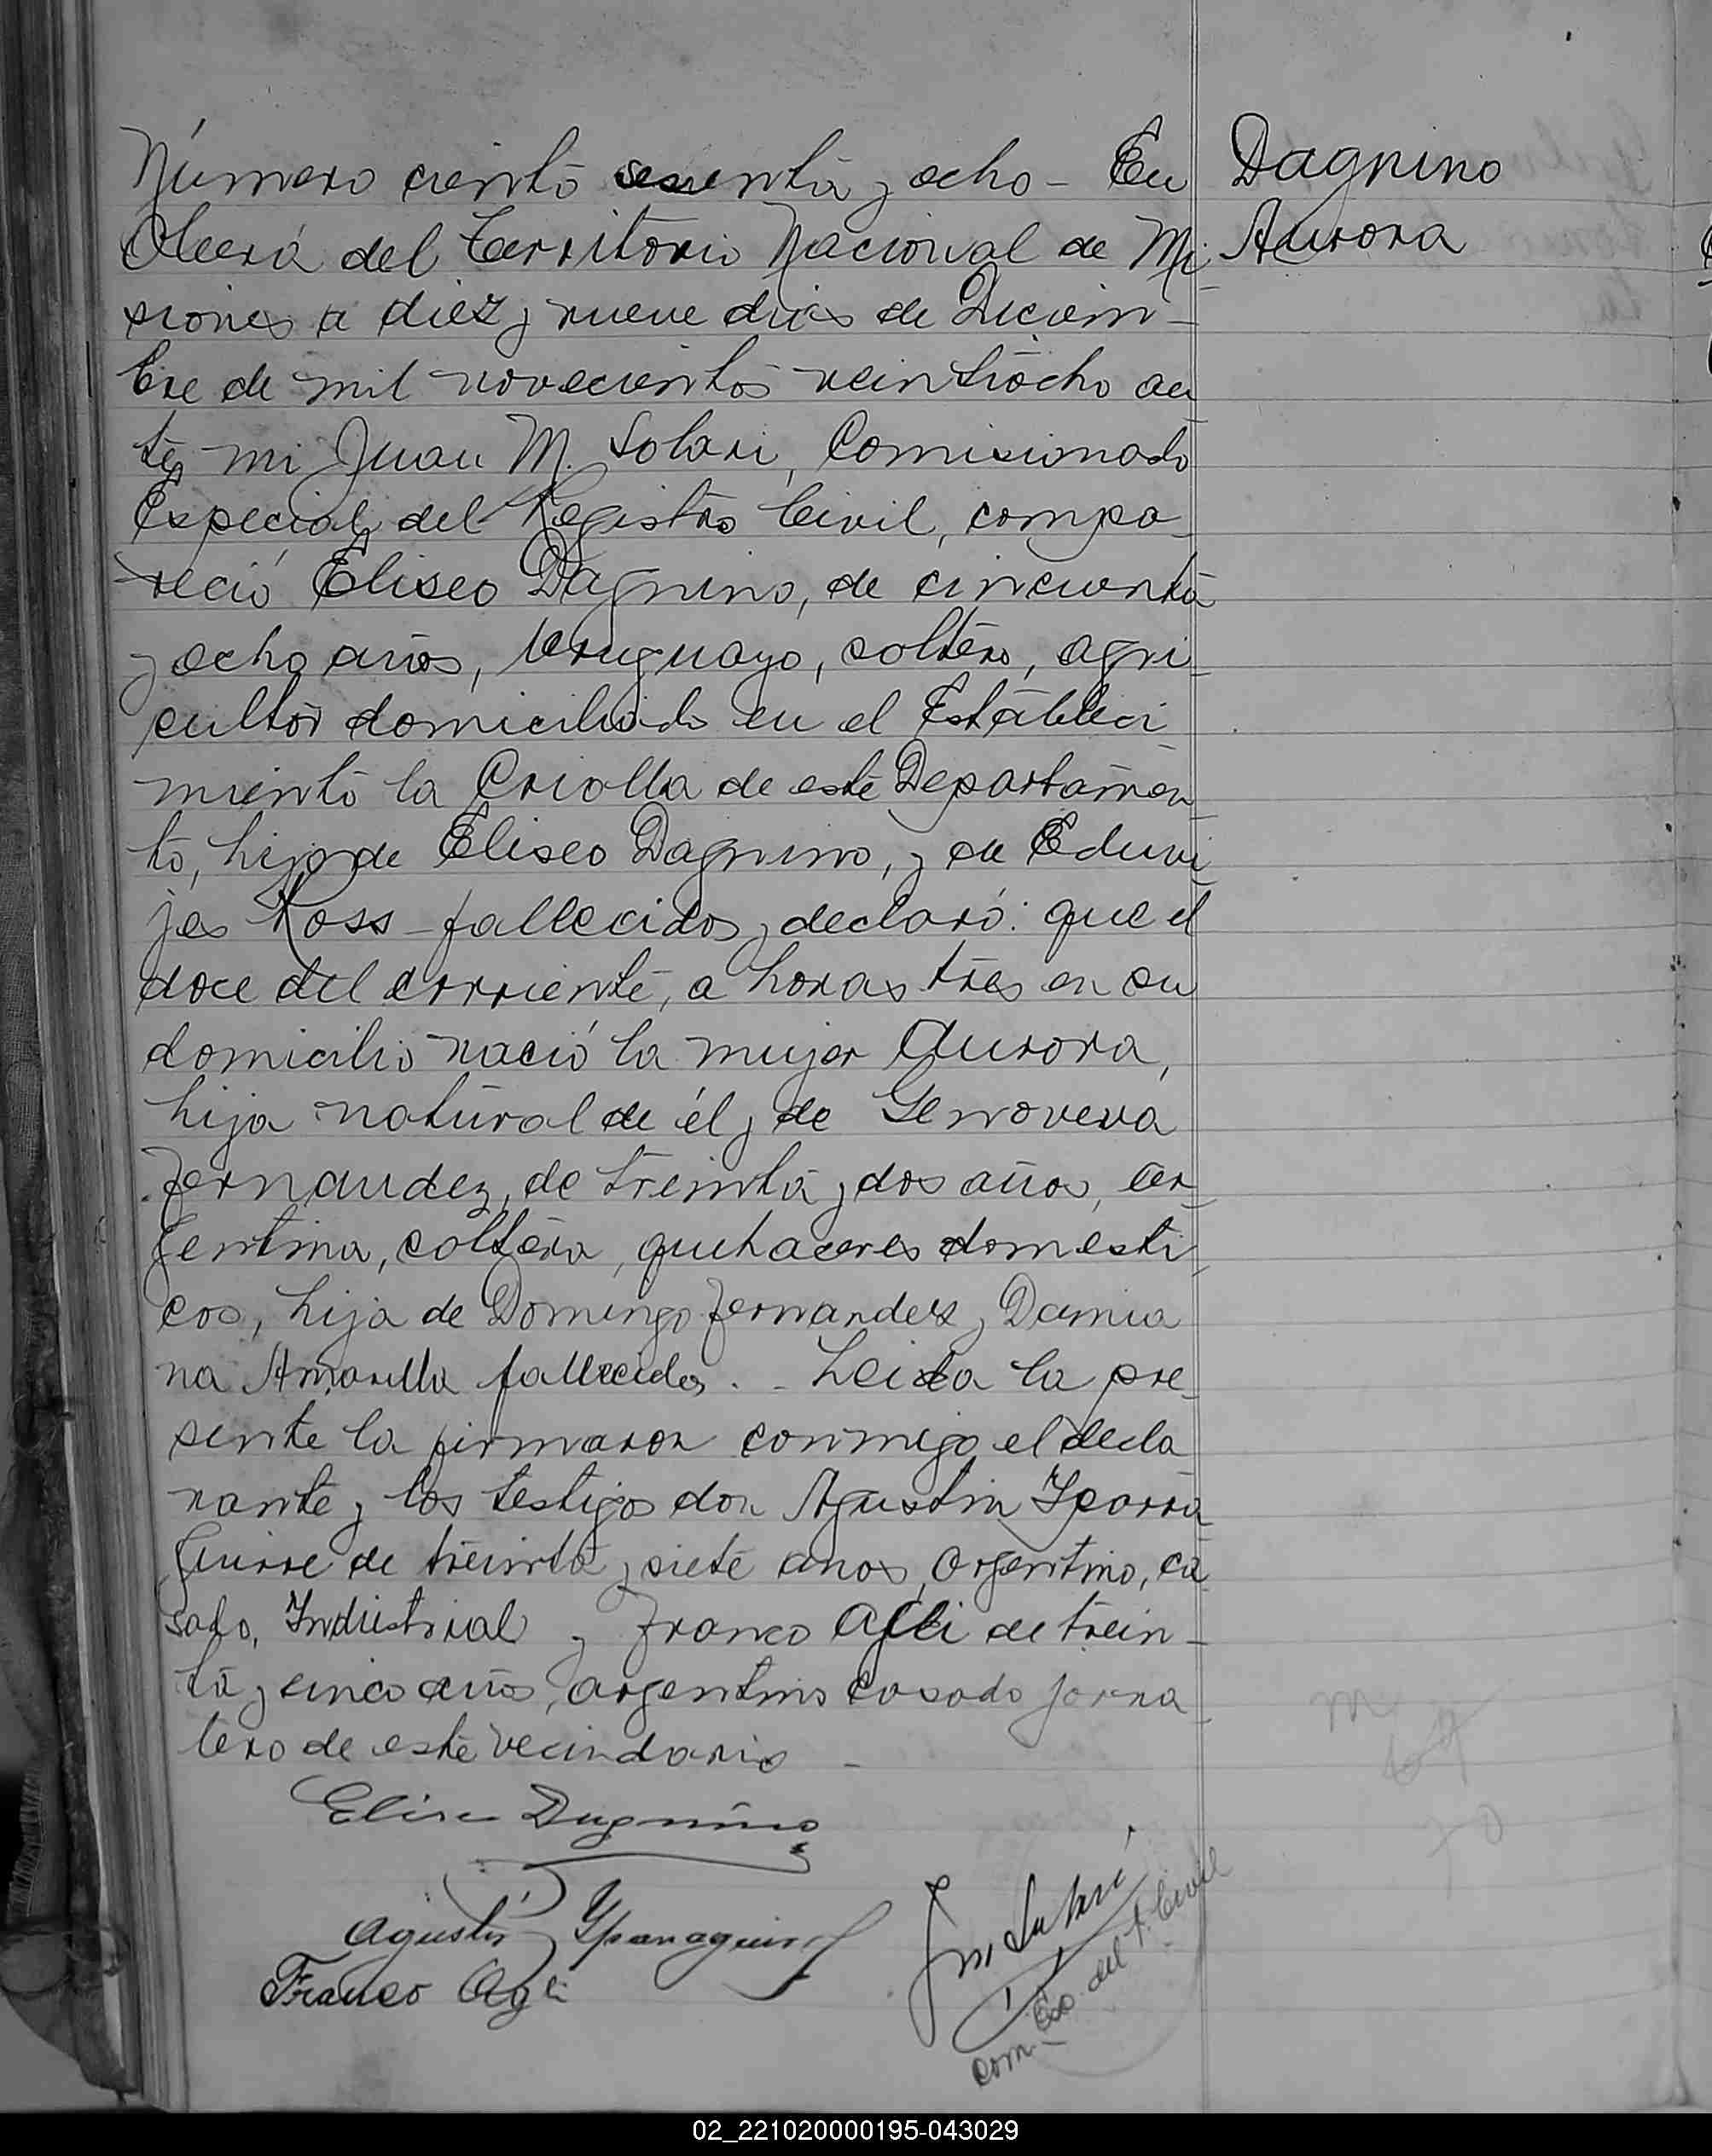 Número ciento sesenta y ocho - En
Oberá del Territorio Nacional de Mi
siones a diez y nueve dias de Diciem-
bre de mil novecientos veintiocho an
te mi Juan M. Solari, Comisionado
Especial del Registro Civil, compa-
reció Eliseo Dagnino, de cincuenta
y ocho años, Uruguayo, soltero, agri-
cultor domiciliado en el Estableci
miento la Criolla de este Departamen
to, hijo de Eliseo Dagnino, y de Eduvi
jes Ross - fallecidos, declaró: que el
doce del corriente, a horas tres en su
domicilio nació la mujer Aurora,
hija natural de él y de Genoveva
Fernandez, de treinta y dos años, ar-
gentina, soltera, quehaceres domesti-
cos, hija de Domingo Fernandez y Damia
na Amarilla fallecidos. - Leida la pre-
sente la firmaron conmigo el decla
rante y los testigos don Agustin Iparra
guirre de treinta y siete anos, argentino, ca
sado, Industrial y Franco Agli de trein-
ta y cinco años, argentino casado jorna-
lero de este vecindario -
Dagnino
Aurora
Eliseo Dagnino
Agustin Yparraguirre
Franco Agli
JM Solari
Com. Esp. del R. Civil
02_221020000195-043029